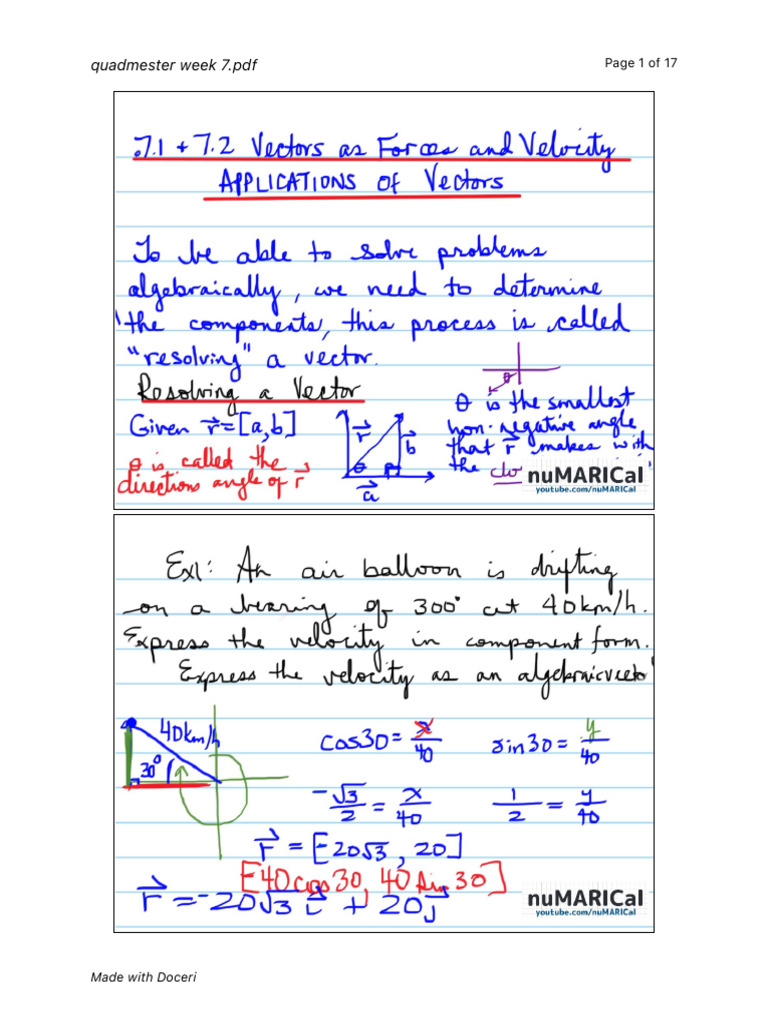 quadmester week 7.pdf
Page 1 of 17
7.1 + 7.2 Vectors as Forces and Velocity
APPLICATIONS OF Vectors
To be able to solve problems
algebraically, we need to determine
the components, this process is called
"resolving" a vector.
Resolving a Vector
Given r⃗=[a,b]
θ is called the
directions angle of r⃗
r⃗
b⃗
θ
a⃗
θ
θ is the smallest
non-negative angle
that r⃗ makes with
the clo
nuMARICal
youtube.com/nuMARICal
Ex1: An air balloon is drifting
on a bearing of 300° at 40km/h.
Express the velocity in component form.
Express the velocity as an algebraic vecto
40km/h
30°
cos30 = x/40
sin30 = y/40
-√3/2 = x/40
1/2 = y/40
r⃗ = [20√3, 20]
[40cos30, 40sin30]
r⃗ = -20√3 i + 20j
nuMARICal
youtube.com/nuMARICal
Made with Doceri